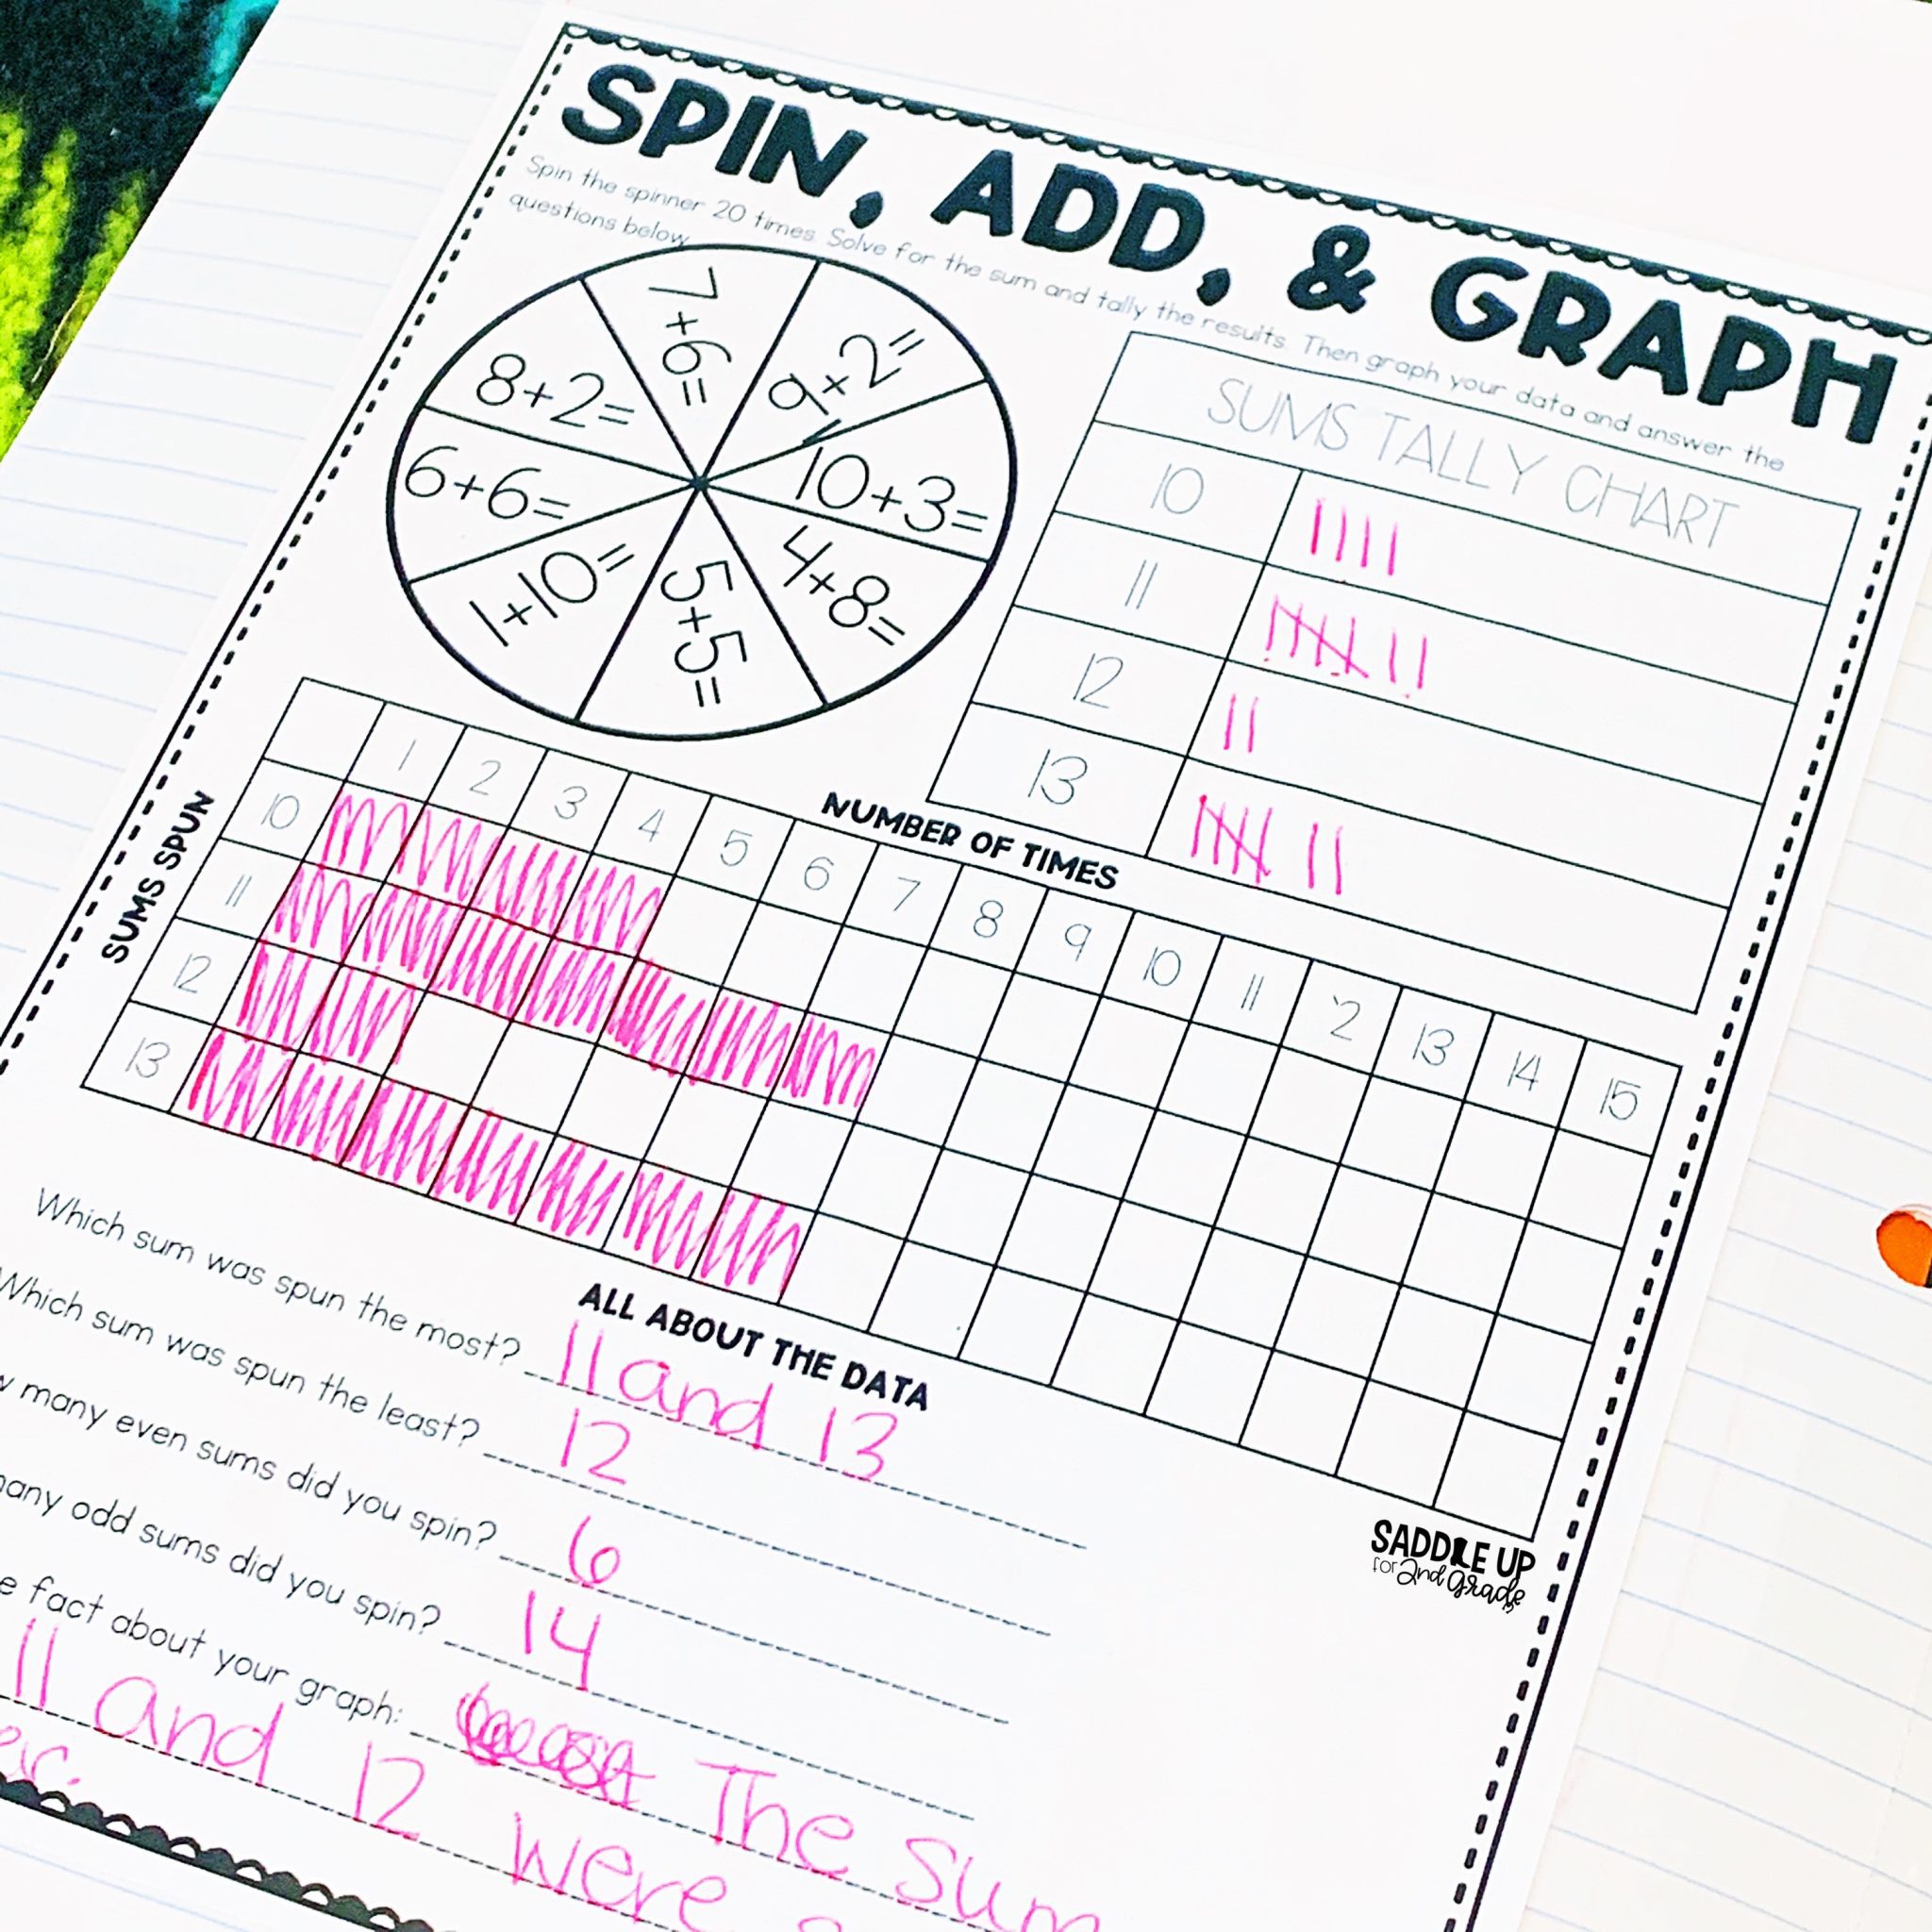 SPIN, ADD, & GRAPH
Spin the spinner 20 times. Solve for the sum and tally the results. Then graph your data and answer the
questions below.
7+6=
9+2=
10+3=
4+8=
5+5=
1+10=
6+6=
8+2=
SUMS TALLY CHART
10
11
12
13
NUMBER OF TIMES
SUMS SPUN
1 2 3 4 5 6 7 8 9 10 11 12 13 14 15
10
11
12
13
ALL ABOUT THE DATA
Which sum was spun the most? 11 and 13
Which sum was spun the least? 12
many even sums did you spin? 6
many odd sums did you spin? 14
fact about your graph: The sum
11 and 12 were
SADDLE UP
for 2nd grade